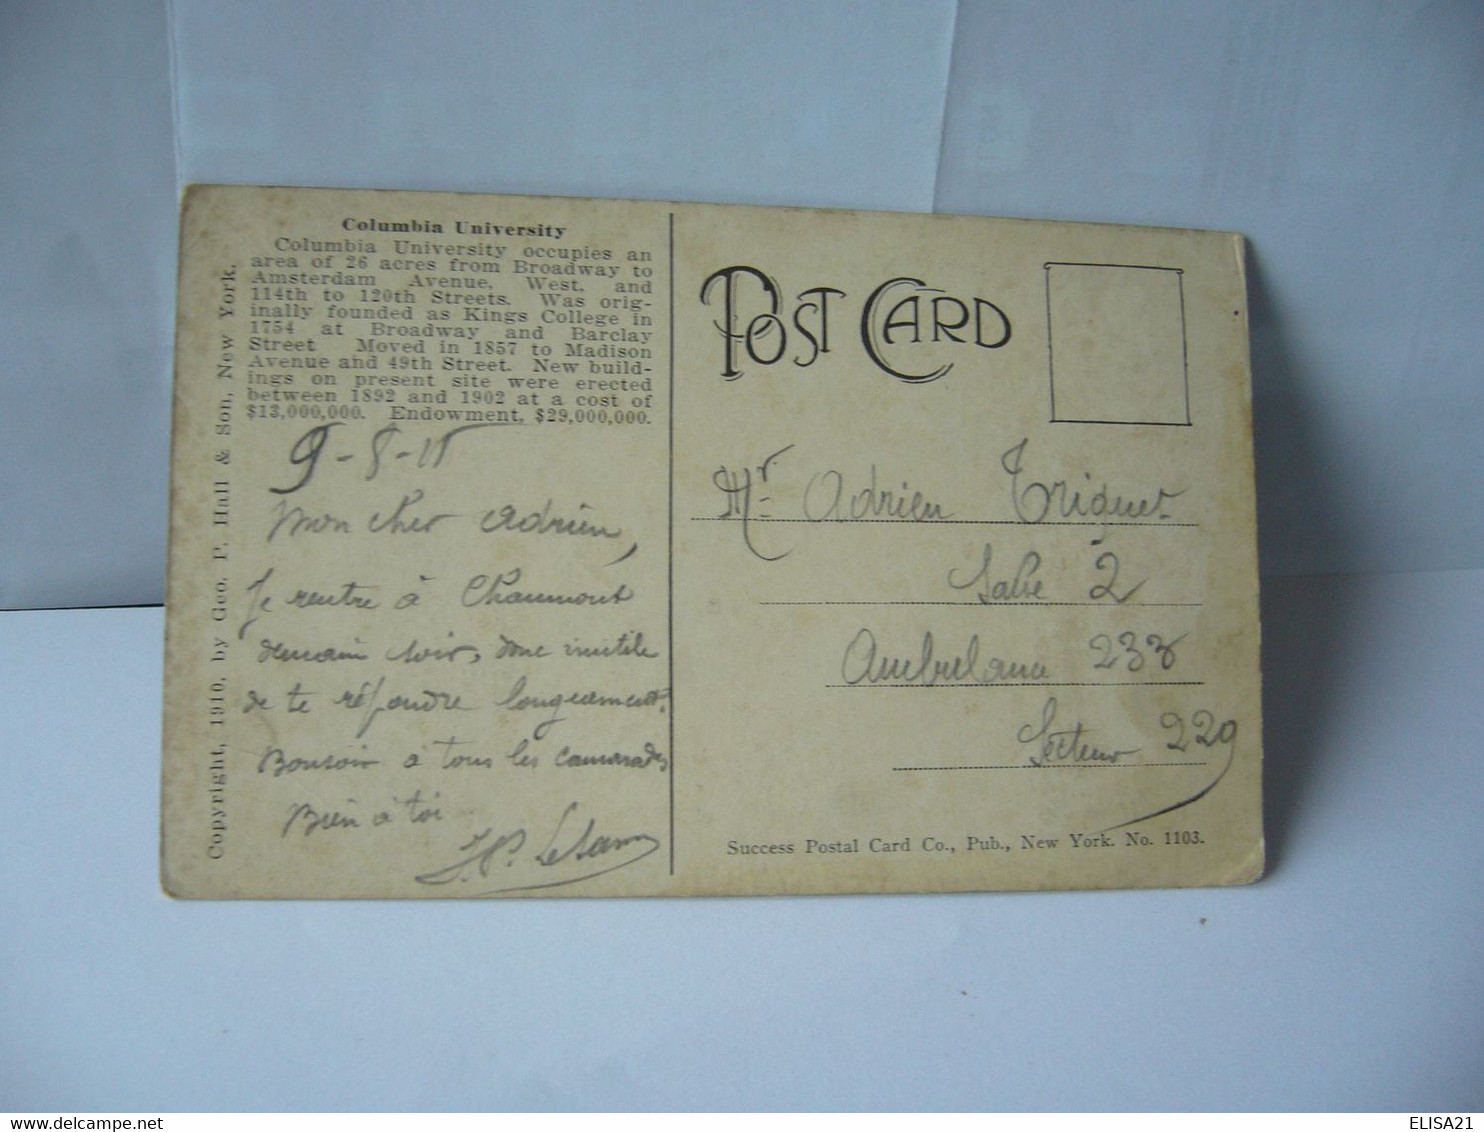 Columbia University
Columbia University occupies an
area of 26 acres from Broadway to
Amsterdam Avenue, West, and
114th to 120th Streets. Was orig-
inally founded as Kings College in
1754 at Broadway and Barclay
Street Moved in 1857 to Madison
Avenue and 49th Street. New build-
ings on present site were erected
between 1892 and 1902 at a cost of
$13,000,000. Endowment, $29,000,000.
Copyright, 1910, by Geo. P. Hall & Son, New York.
Mon cher Adrien,
Je rentre à Chaumont
demain soir, donc inutile
de te répondre longuement.
Bonsoir à tous les camarades
Bien à toi
POST CARD
Mr Adrien Triquet
Salle 2
Ambulance 233
Secteur 229
Success Postal Card Co., Pub., New York. No. 1103.
ELISA21